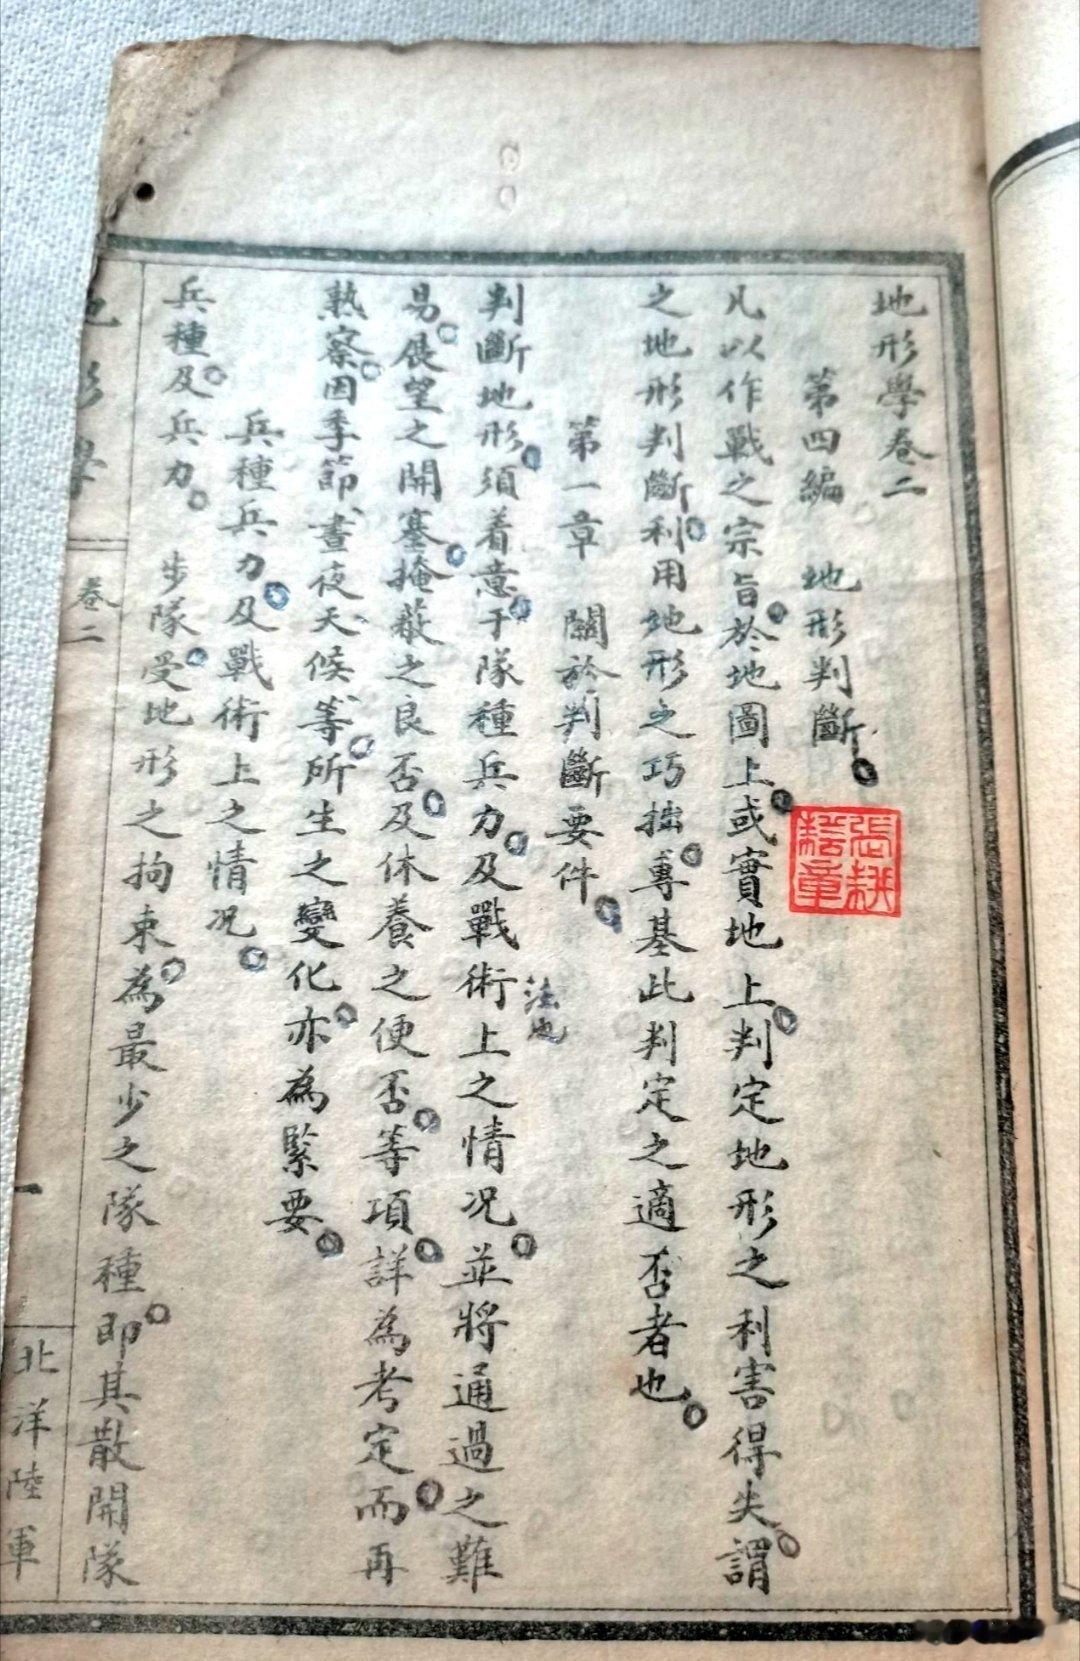 地形學卷二
第四編　地形判斷
凡以作戰之宗旨於地圖上或實地上判定地形之利害得失謂
之地形判斷利用地形之巧拙專基此判定之適否者也
第一章　關於判斷要件
法也
判斷地形須着意于隊種兵力及戰術上之情况並將通過之難
易展望之開塞掩蔽之良否及休養之便否等項詳為考定而再
熟察因季節晝夜天候等所生之變化亦為緊要
兵種兵力及戰術上之情况
兵種及兵力　步隊受地形之拘束為最少之隊種即其散開隊
地形學
卷二
一
北洋陸軍
張耕
耘章